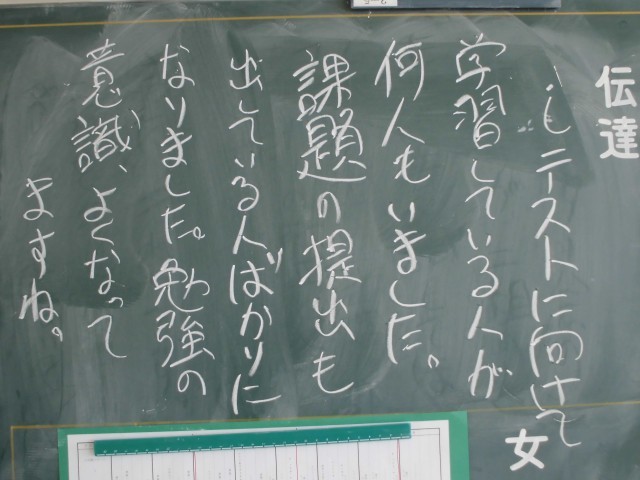 伝達
もテストに向けて
学習している人が
何人もいました。
課題の提出も
出している人ばかりに
なりました。勉強の
意識、よくなって
ますね。
女